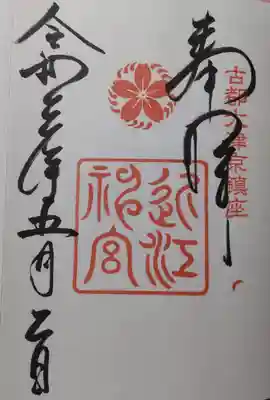 奉拝
古都大津京鎮座
近江神宮
令和三年五月二日